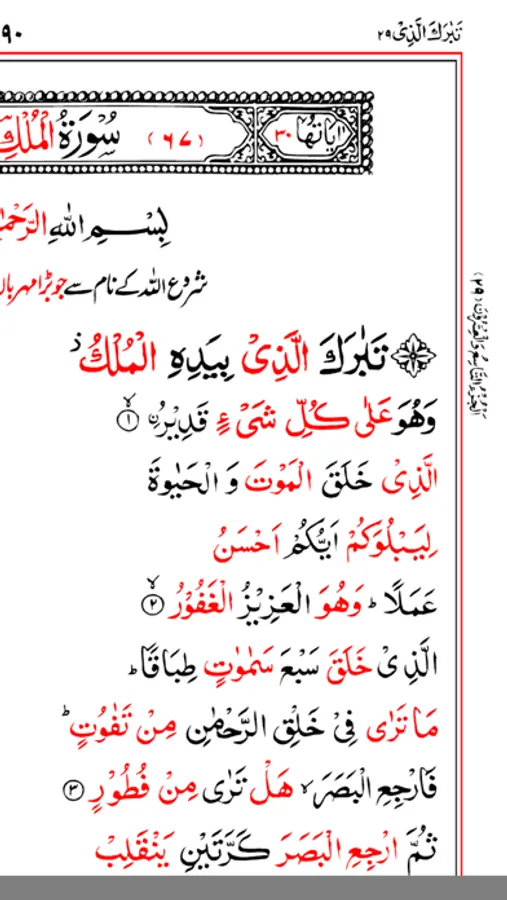 تَبٰرَكَ الَّذِیْ ۲۹
۹۰
اٰیَاتُهَا ۳۰ (۶۷) سُوْرَةُ الْمُلْكِ
بِسْمِ اللهِ
شروع اللہ کے نام سے جو بڑا مہربان
تَبٰرَكَ الَّذِیْ بِیَدِهِ الْمُلْكُ ز
وَهُوَ عَلٰی كُلِّ شَیْءٍ قَدِیْرُ ۨ ۙ﴿۱﴾
الَّذِیْ خَلَقَ الْمَوْتَ وَ الْحَیٰوةَ
لِیَبْلُوَكُمْ اَیُّكُمْ اَحْسَنُ
عَمَلًا ؕ وَهُوَ الْعَزِیْزُ الْغَفُوْرُ ۙ﴿۲﴾
الَّذِیْ خَلَقَ سَبْعَ سَمٰوٰتٍ طِبَاقًا ؕ
مَا تَرٰی فِیْ خَلْقِ الرَّحْمٰنِ مِنْ تَفٰوُتٍ ؕ
فَارْجِعِ الْبَصَرَ ۙ هَلْ تَرٰی مِنْ فُطُوْرٍ ﴿۳﴾
ثُمَّ ارْجِعِ الْبَصَرَ كَرَّتَیْنِ یَنْقَلِبْ
اَلْجُزْءُ التَّاسِعُ وَالْعِشْرُوْنَ (۲۹)